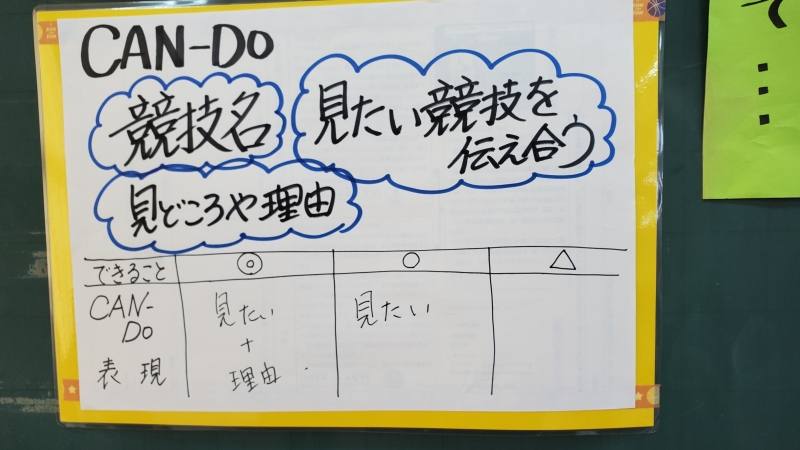 CAN-DO
競技名
見たい競技を
伝え合う
見どころや理由
できること ◎ ○ △
CAN-
DO 見たい 見たい
+
表現 理由
て…